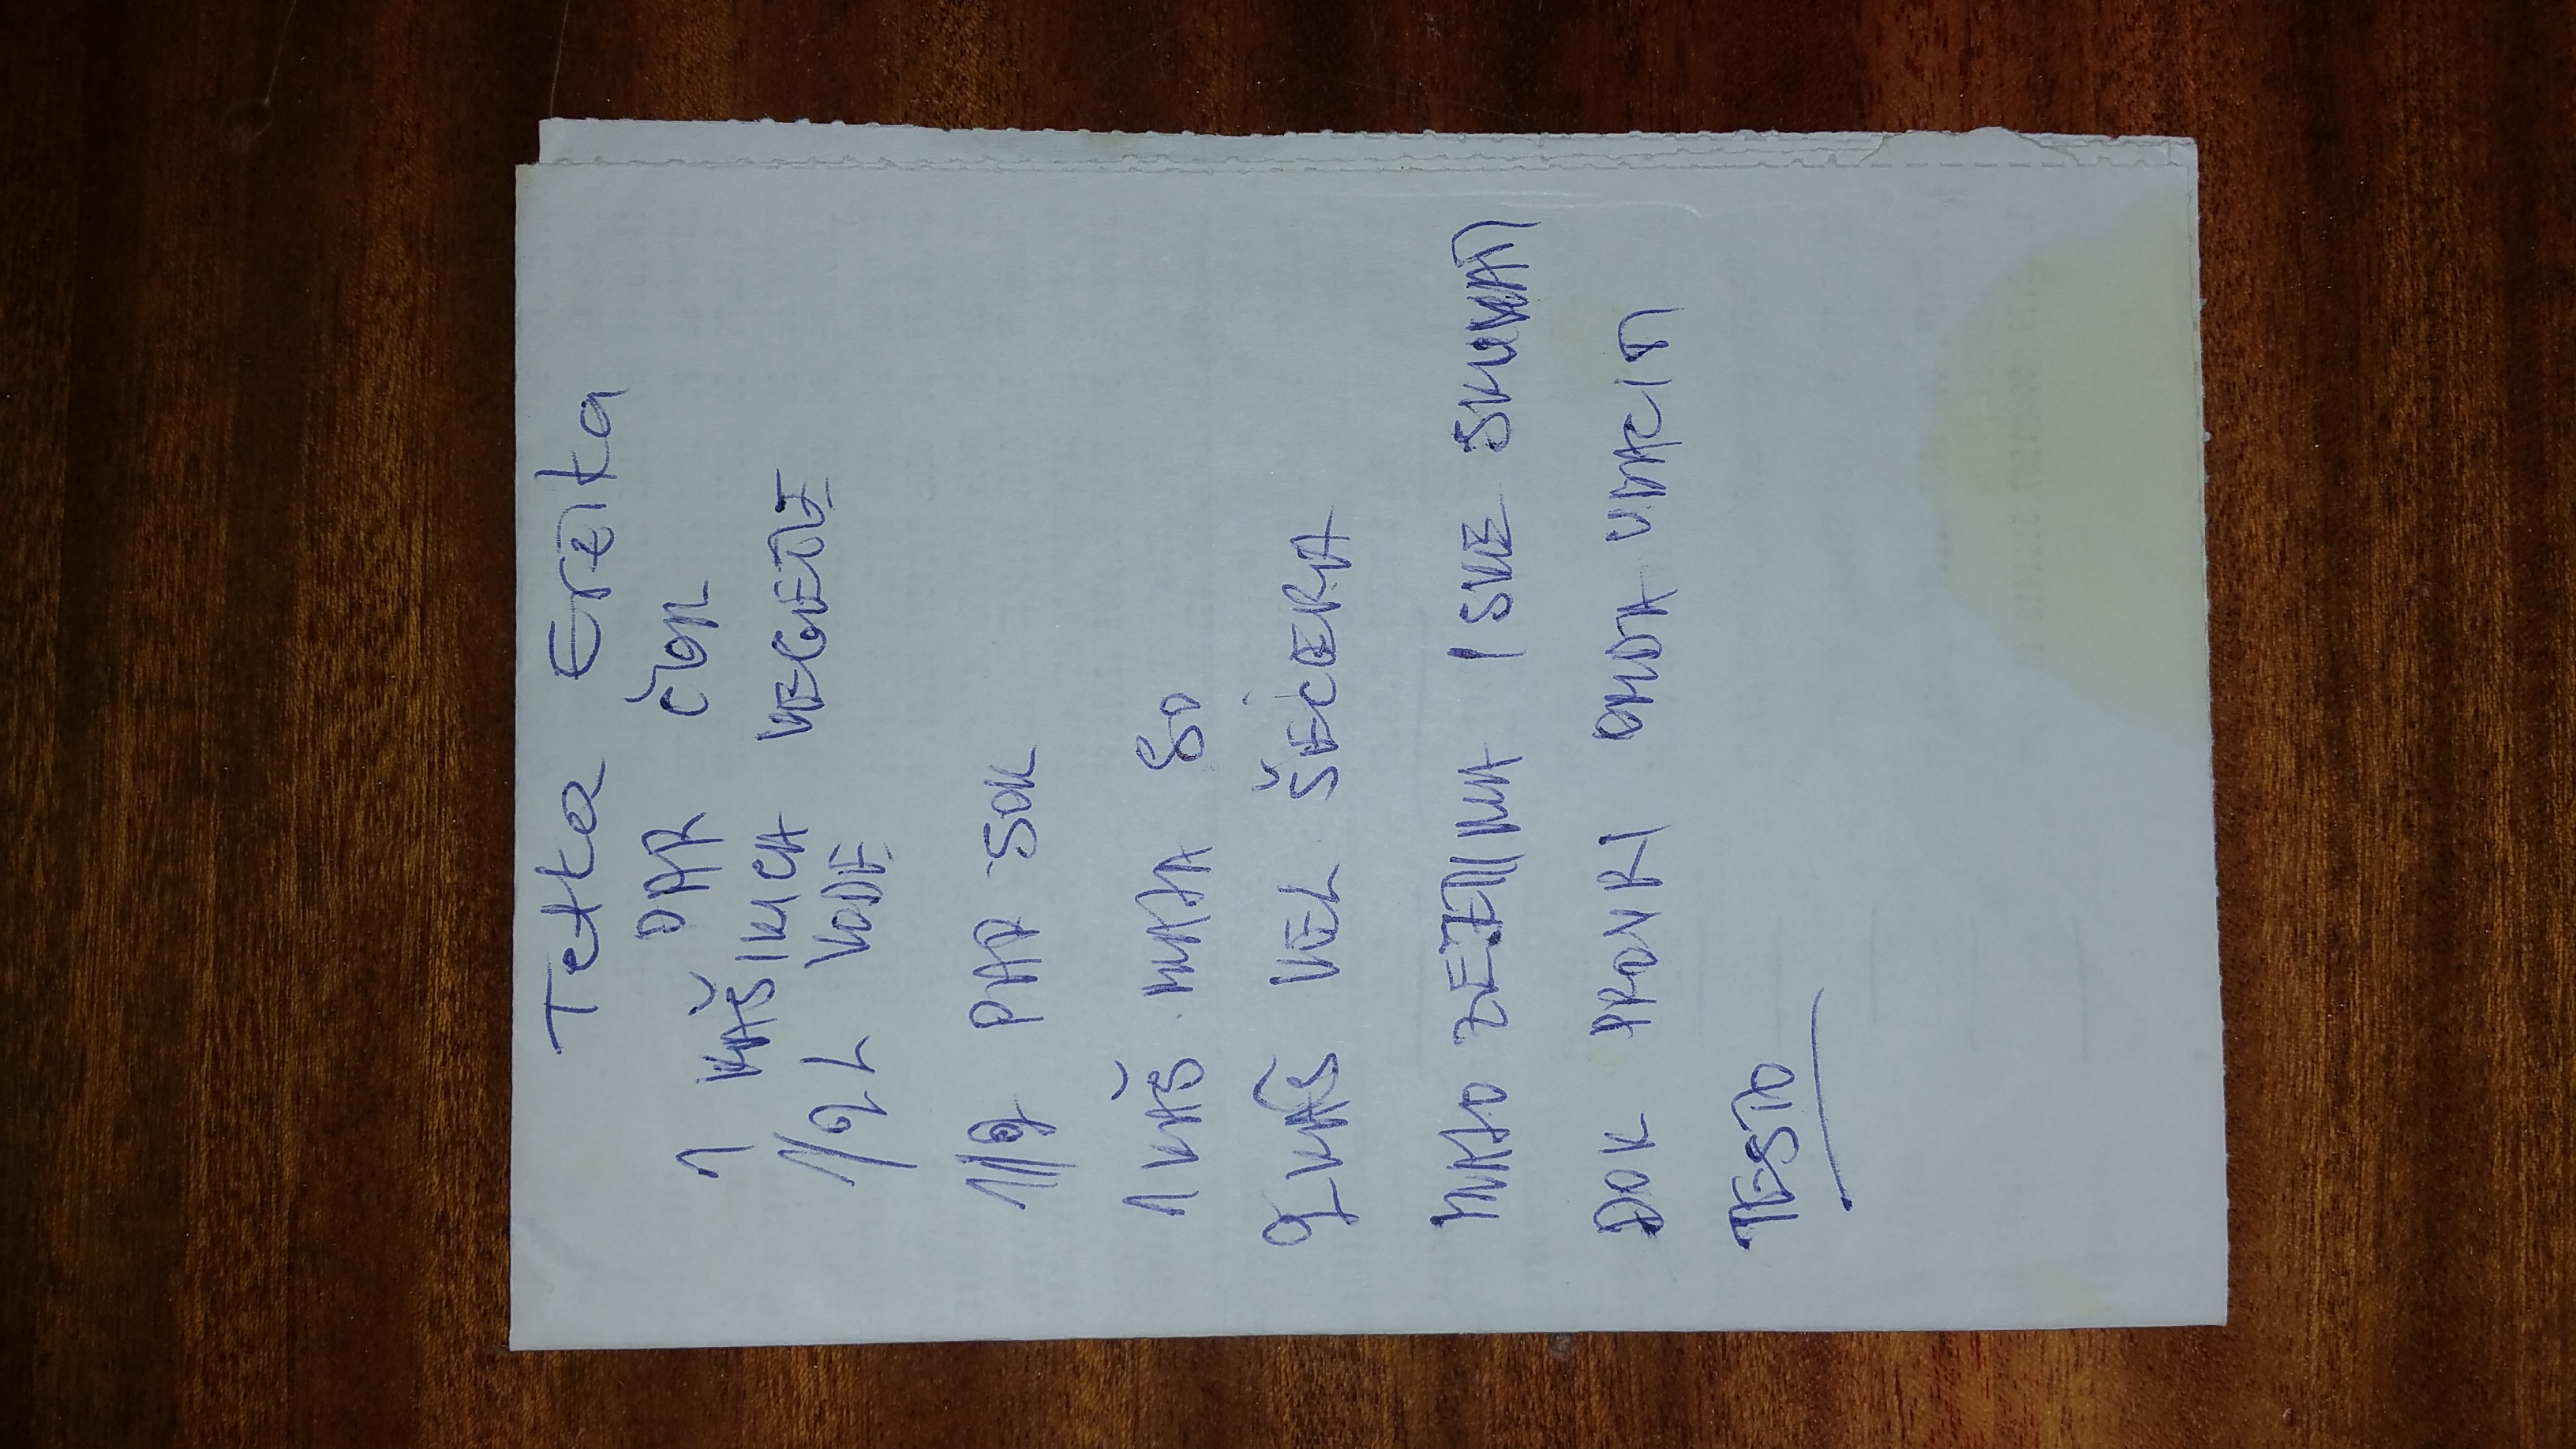 Tetka Eržika
PAR ČOR
1 KAŠIKICA VEGETE
1/2 L VODE
1/2 PAR SOK
1 KAŠ MALA SO
2 KAŠ VEL ŠEĆERA
MALO ZEJTINA I SVE SKUVATI
DOK PROVRI ONDA UBACITI
TESTO